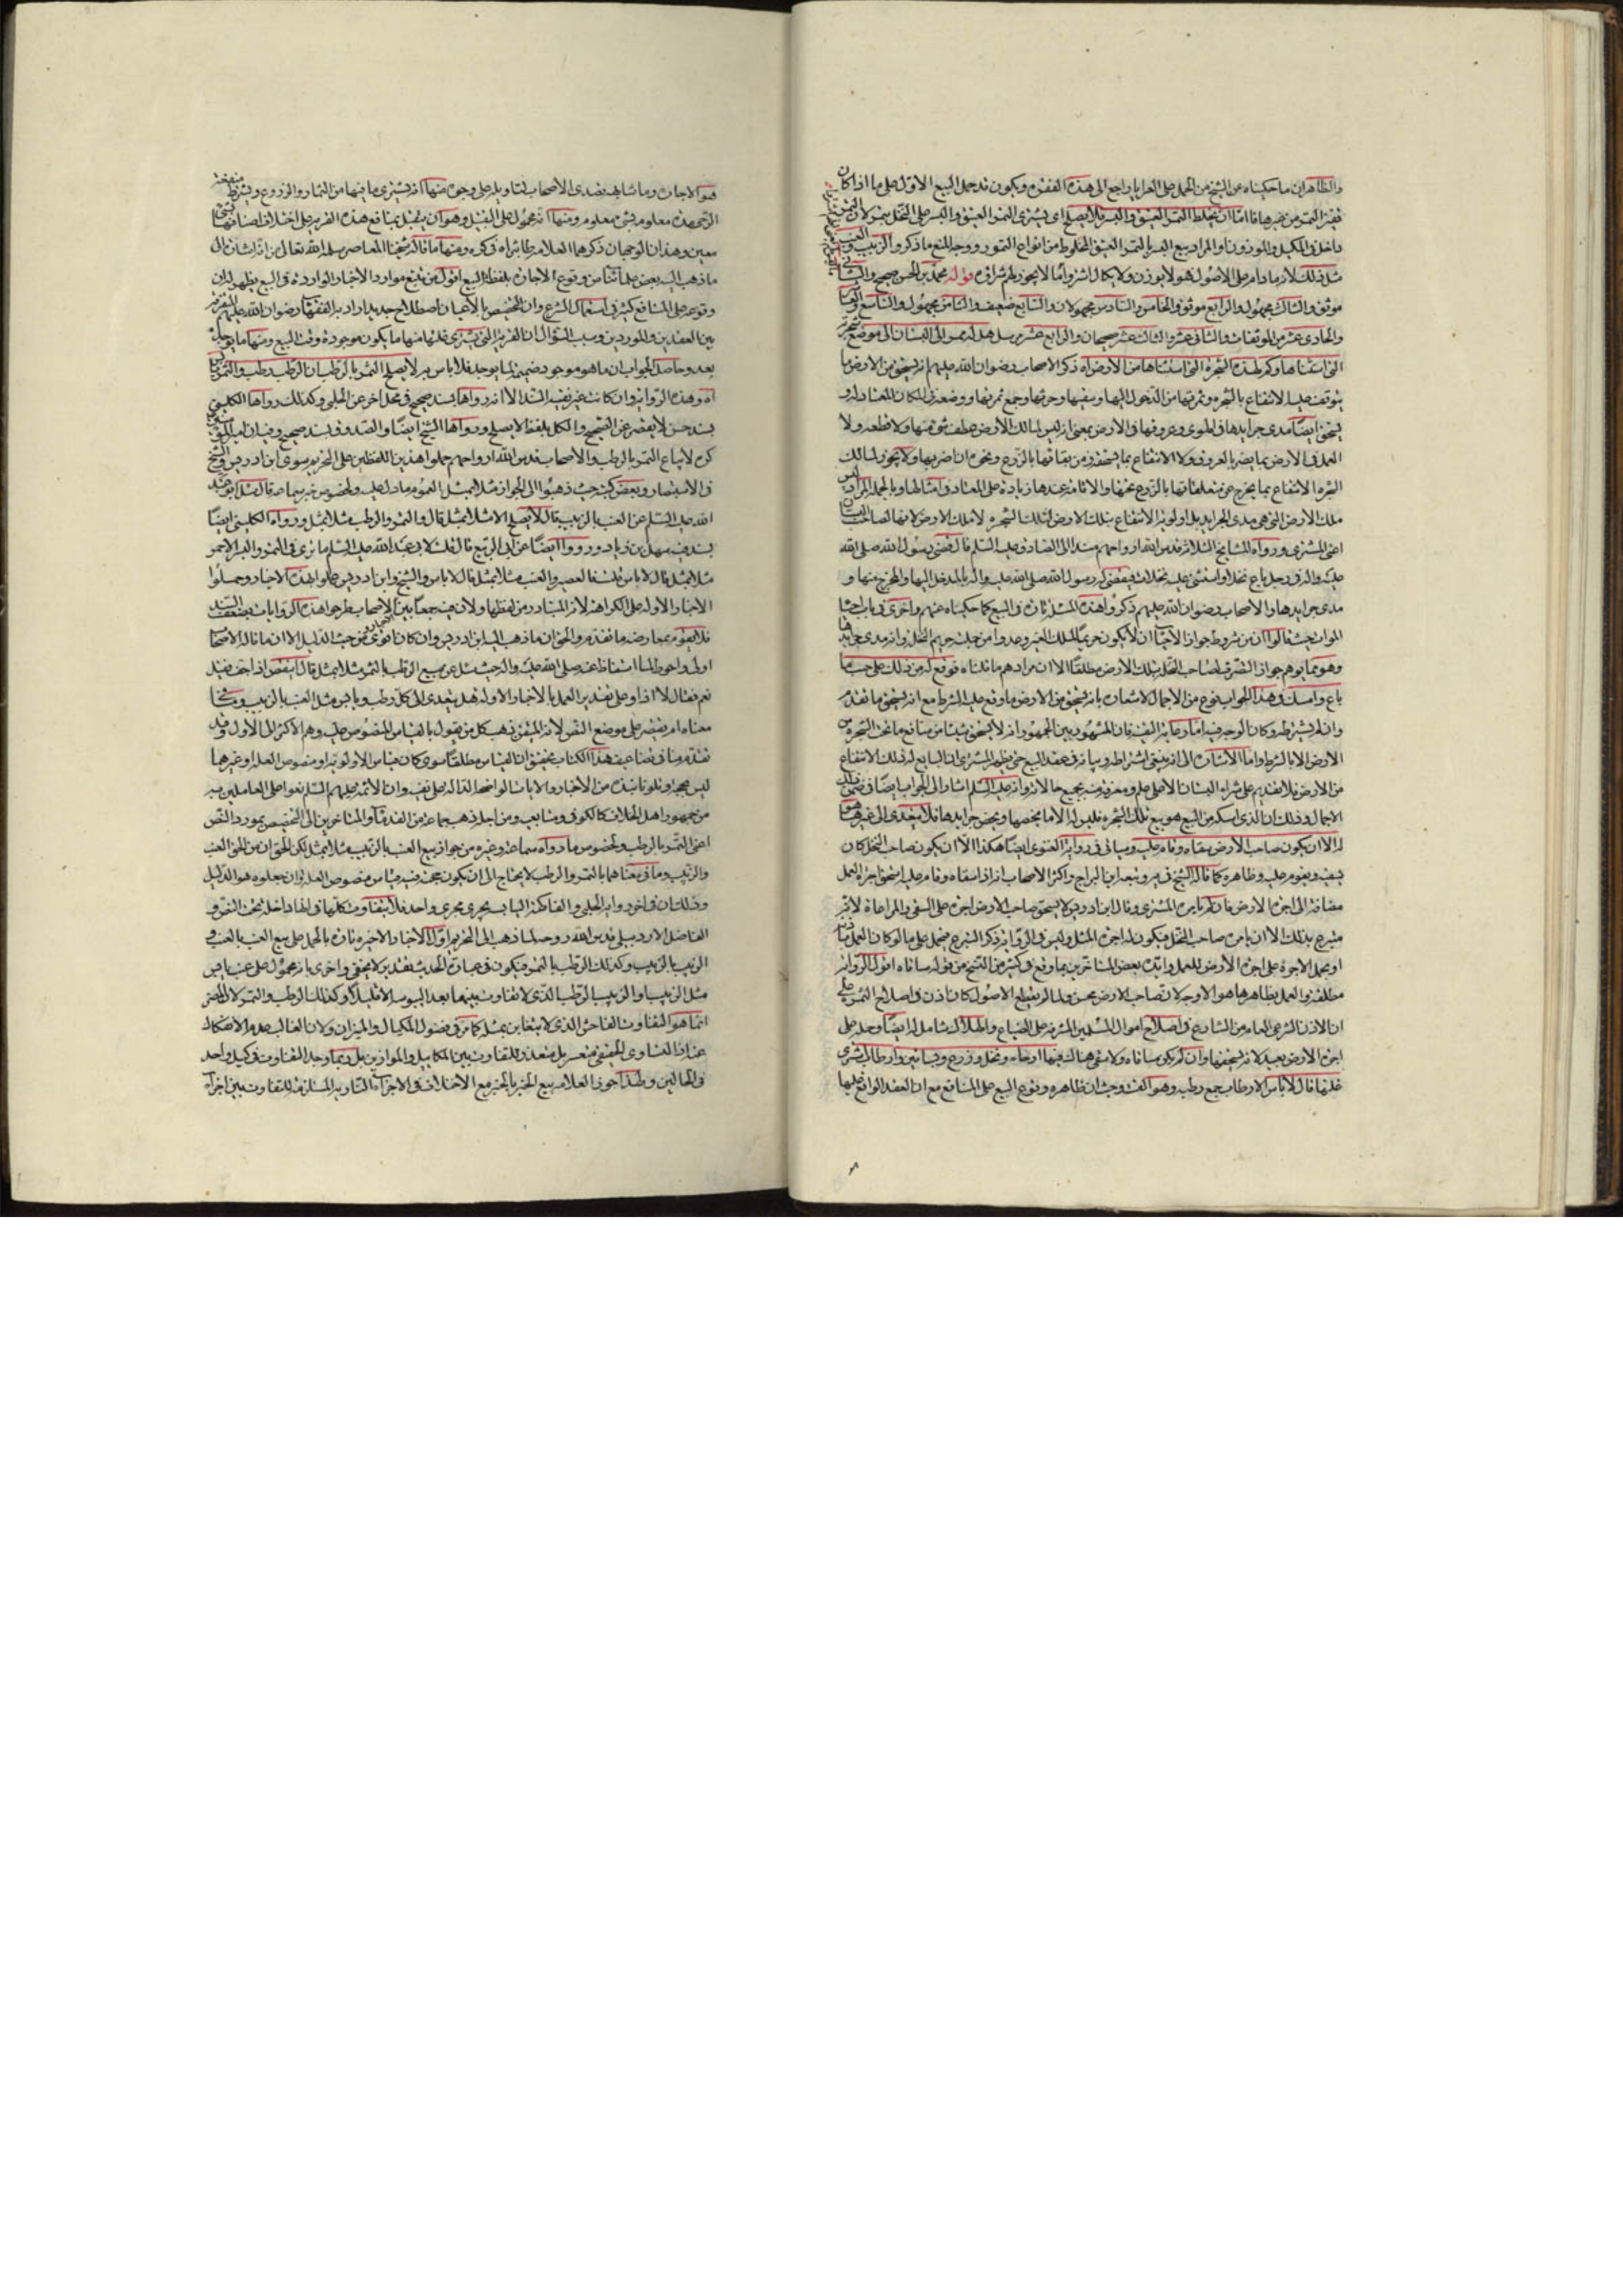 والظاهر ان ما حكيناه عن الشيخ من الحمل على العرايا راجع الى هذه الفقره ويكون قد حمل البيع الاول على ما اذا كان
من غيرها فاما ان يخلط التمر العتيق والبسر فلا يصلح اى يشترى التمر العتيق والبسر على النخل بتمر لان التمر
داخل فى المكيل والموزون او المراد بيع البسر بالتمر العتيق المخلوط من انواع التمور ووجه المنع ما ذكر والزبيب والعنب
مثل ذلك لانه ما دام على الاصول هو لا يوزن ولا يكال قوله محمد بن الحسن صحيح والثانى
موثق والثالث مجهول والرابع موثق والخامس والسادس مجهولان والسابع ضعيف والثامن مجهول والتاسع
والحادى عشر من الموثقات والثانى عشر والثالث عشر صحيحان والرابع عشر مرسل
التى استثناها وكم لهذه الشجرة التى استثناها من الارض اه ذكر الاصحاب رضوان الله عليهم انه يستحق من الارض ما
يتوقف عليه الانتفاع بالشجره وثمرتها من الدخول اليها وسقيها وحرثها وجمع ثمرتها ووضعه فى المكان المعتاد له و
يستحق ايضا مدى جرايدها فى الهوى وعروقها فى الارض بمعنى انه ليس لمالك الارض عطف شىء منها ولا قطعه ولا
العمل فى الارض بما يضر بالعروق ولا الانتفاع بما يستحقه من بقائها بالزرع ونحوه ان اضر بها ولا يجوز لمالك
الشجره الانتفاع بما يخرج عن متعلقاتها بالزرع تحتها والاقامة عندها زيادة على المعتاد فى امثالها وبالجمله المراد ليس
ملك الارض التى هى مدى الجرايد بل اولوية الانتفاع بتلك الارض لتلك الشجره لا ملك الارض لانها لصاحب البستان
اعنى المشترى ورواه المشايخ الثلاثة قدس الله ارواحهم مسندا الى الصادق عليه السلم قال قضى رسول الله صلى الله
عليه واله فى رجل باع نخلا واستثنى عليه نخلات فقضى له رسول الله صلى الله عليه واله بالمدخل اليها والمخرج منها و
مدى جرايدها والاصحاب رضوان الله عليهم ذكروا هذه المسئله تارة فى البيع كما حكيناه عنهم واخرى فى باب احيا
الموات حيث قالوا ان من شروط جواز الاحيا ان لا يكون حريما لملك الغير وعدوا من جملته حريم النخل وانه مدى جرايدها
وهو مما يوهم جواز التصرف لصاحب النخله بتلك الارض مطلقا الا ان مرادهم ما قلناه فوقع له من ذلك على حسب ما
باع وامسك فى هذا الجواب نوع من الاجمال لاشعاره بانه يستحق من الارض ما وقع عليه الشرط مع انه يستحق ما تقدم
وان لم يشترطه وكان الوجه فيه اما رعاية التقيه فان المشهور بين الجمهور انه لا يستحق شيئا من منافع ما تحت الشجره من
الارض الا بالشرط واما الاشارة الى انه ينبغى اشتراطه وبيانه فى عقد البيع حتى يظهر للمشترى ان البايع له ذلك الانتفاع
من الارض فلا يقدم على شراء البستان الا على علم ومعرفة منه بجميع حالاته وانه عليه السلم اشار الى الجواب ايضا فى ضمن ذلك
الاجمال وذلك ان الذى امسكه من البيع هو بيع تلك الشجره فليس له الا ما يخصها ويخص جرايدها فلا يتعدى الى غيرها
له الا ان يكون صاحب الارض سقاه وقام عليه وسياتى فى رواية الغنوى ايضا هكذا الا ان يكون صاحب النخل كان
يسقيه ويقوم عليه وظاهره كما قاله الشيخ فى يه وتبعه ابن البراج واكثر الاصحاب انه اذا سقاه وقام عليه استحق اجرة العمل
مضافة الى اجرة الارض فان لم يامره المشترى وقال ابن ادريس لا يستحق صاحب الارض اجرة على السقى والمراعاة لانه
متبرع بذلك الا ان يامره صاحب النخل فيكون له اجرة المثل وليس فى الرواية ذكر التبرع فتحمل على ما لو كان العمل باذنه
او يحمل الاجرة على اجرة الارض للعمل وايده بعض المتاخرين بما وقع فى كثير من النسخ من قوله ساقاه اقول الرواية
مطلقة والعمل بظاهرها هو الاوجه لان صاحب الارض محسن ولما لم يقطع الاصول كان اذن فى اصلاح الثمره على
ان الاذن الشرعى العام من الشارع فى اصلاح اموال المسلمين المشرفة على الضياع والهلاك شامل له ايضا وحمله على
اجرة الارض بعيد لانه يستحقها وان لم يكن ساقاه ولا سقى هناك فيها ارحاء ونخل وزرع وبساتين وارطاب اشترى
غلتها قال لا باس الارطاب جمع رطبه وهو القت وحيث ان ظاهره وقوع البيع على المنافع مع ان العقد الواقع عليها
هو الاجارة وما شابهه تصدى الاصحاب لتاويله على وجوه منها انه يشترى ما فيها من الثمار والزروع ويشترط منفعة
الرحى مدة معلومه بشىء معلوم ومنها انه محمول على التقبيل وهو ان يتقبل بمنافع هذه القرية على اختلاف اصنافها بشىء
معين وهذان الوجهان ذكرهما العلامه طاب ثراه فى كره ومنها ما قاله شيخنا المعاصر سلمه الله تعالى من انه اشارة الى
ما ذهب اليه بعض علمائنا من وقوع الاجاره بلفظ البيع اقول من تتبع موارد الاخبار الوارده فى البيع يظهر له ان
وقوعه على المنافع كثير فى استعمال الشرع وان التخصيص بالاعيان اصطلاح جديد اراد به الفقها رضوان الله عليهم التفرقه
بين العقدين والموردين وسبب السؤال ان القرية التى يشترى غلتها منها ما يكون موجودة وقت البيع ومنها ما يوجد
بعد وحاصل الجواب ان ما هو موجود ضميمة لما يوجد فلا باس به لا يصلح التمر بالرطب ان الرطب رطب والتمر يابس
اه وهذه الرواية وان كانت غير نقية السند الا انه رواها بسند صحيح فى محل اخر عن الحلبى وكذلك رواها الكلينى
بسند حسن لا يقصر عن الصحيح والكل بلفظ لا يصلح ورواها الشيخ ايضا والصدوق بسند صحيح
كره لا يباع التمر بالرطب والاصحاب قدس الله ارواحهم حملوا هذين اللفظين على التحريم سوى ابن ادريس والشيخ
فى الاستبصار وبعض كتبه حيث ذهبوا الى الجواز مثلا بمثل لعموم ما دل عليه ولخصوص خبر سماعه قال سئل ابو عبد
الله عليه السلم عن العنب بالزبيب قال لا يصلح الا مثلا بمثل قال والتمر والرطب مثلا بمثل ورواه الكلينى ايضا
بسند فيه سهل بن زياد ورووا ايضا عن ابى الربيع قال قلت لابى عبد الله عليه السلم ما ترى فى التمر والبسر الاحمر
مثلا بمثل قال لا باس قلت فالعصير والعنب مثلا بمثل قال لا باس والشيخ وابن ادريس عملوا بهذه الاخبار وحملوا
الاخبار الاوله على الكراهة لانه المتبادر من لفظها ولان فيه جمعا بين الاخبار والاصحاب طرحوا هذه الروايات بضعف السند
فلا يقوم بمعارضة ما تقدم والحق ان ما ذهب اليه ابن ادريس وان كان اقوى من حيث الدليل الا ان ما قاله الاصحاب
اولى واحوط لما استفاض عنه صلى الله عليه واله حيث سئل عن بيع الرطب بالتمر مثلا بمثل قال اينقص اذا جف فقيل
نعم فقال لا اذا وعلى تقدير العمل بالاخبار الاوله هل يتعدى الى كل رطب ويابس مثل العنب بالزبيب وما فى
معناه ام يقتصر على موضع النص لانه المتيقن ذهب كل من يقول بالقياس المنصوص عليه وهم الاكثر الى الاول وقد
تقدم منا فى تضاعيف هذا الكتاب تحقيق ان القياس مطلقا سوى كان قياس الاولويه او منصوص العله او غيرهما
ليس بحجة وتلونا نبذة من الاخبار والايات الواضحة الدلاله على نفيه وان الائمه عليهم السلم نعوا على العاملين به
من جمهور اهل الخلاف كالكوفى ومتابعيه ومن اجله ذهب جماعة من القدماء والمتاخرين الى التخصيص بمورد النص
اعنى التمر بالرطب ولخصوص ما رواه سماعه وغيره من جواز بيع العنب بالزبيب مثلا بمثل لكن الحق ان من الحق العنب
والزبيب وما فى معناهما بالتمر والرطب لا يحتاج الى ان يكون حجته فيه قياس منصوص العله وان جعلوه هو الدليل
وذلك ان فى اخر رواية الحلبى والفاكهة اليابسه يجرى مجرى واحد فلا تفاوت وكلها فى انها داخلة تحت التفرق و
الفاضل الاردبيلى قدس الله روحه لما ذهب الى التحريم اول الاخبار الاخيره تارة بالحمل على بيع العنب بالعنب و
الزبيب بالزبيب وكذلك الرطب بالتمر فيكون فى عبارة الحديث تقدير كما لا يخفى واخرى بانه محمول على عنب يابس
مثل الزبيب او الزبيب الرطب الذى لا تفاوت بينهما بعد اليبوسه الا قليلا وكذلك الرطب والتمر لان المضر
انما هو التفاوت الفاحش الذى لا يتغابن بمثله كما مر فى فضول المكيال والميزان ولان الغالب عدم الانفكاك
عنه اذ التساوى الحقيقى متعسر بل متعذر للتفاوت بين المكاييل والموازين بل ربما وجد التفاوت فى كيل واحد
فى الحالين ولهذا جوز العلامه بيع الخبز بالخبز مع الاختلاف فى الاجزاء الناريه المستلزمة للتفاوت بين اجزاء